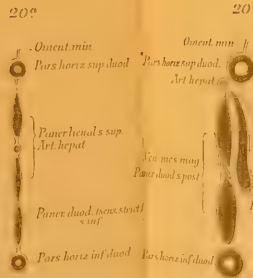 20a
Oment. min.
Pars horiz sup duod
Pancr lienal s sup.
Art. hepat
Pancr. duod. trans. strict
s inf
Pars horiz inf duod
20
Oment. min
Pars horiz sup duod.
Art hepat
mes mag
Pancr duod s post
Pars horiz inf duod